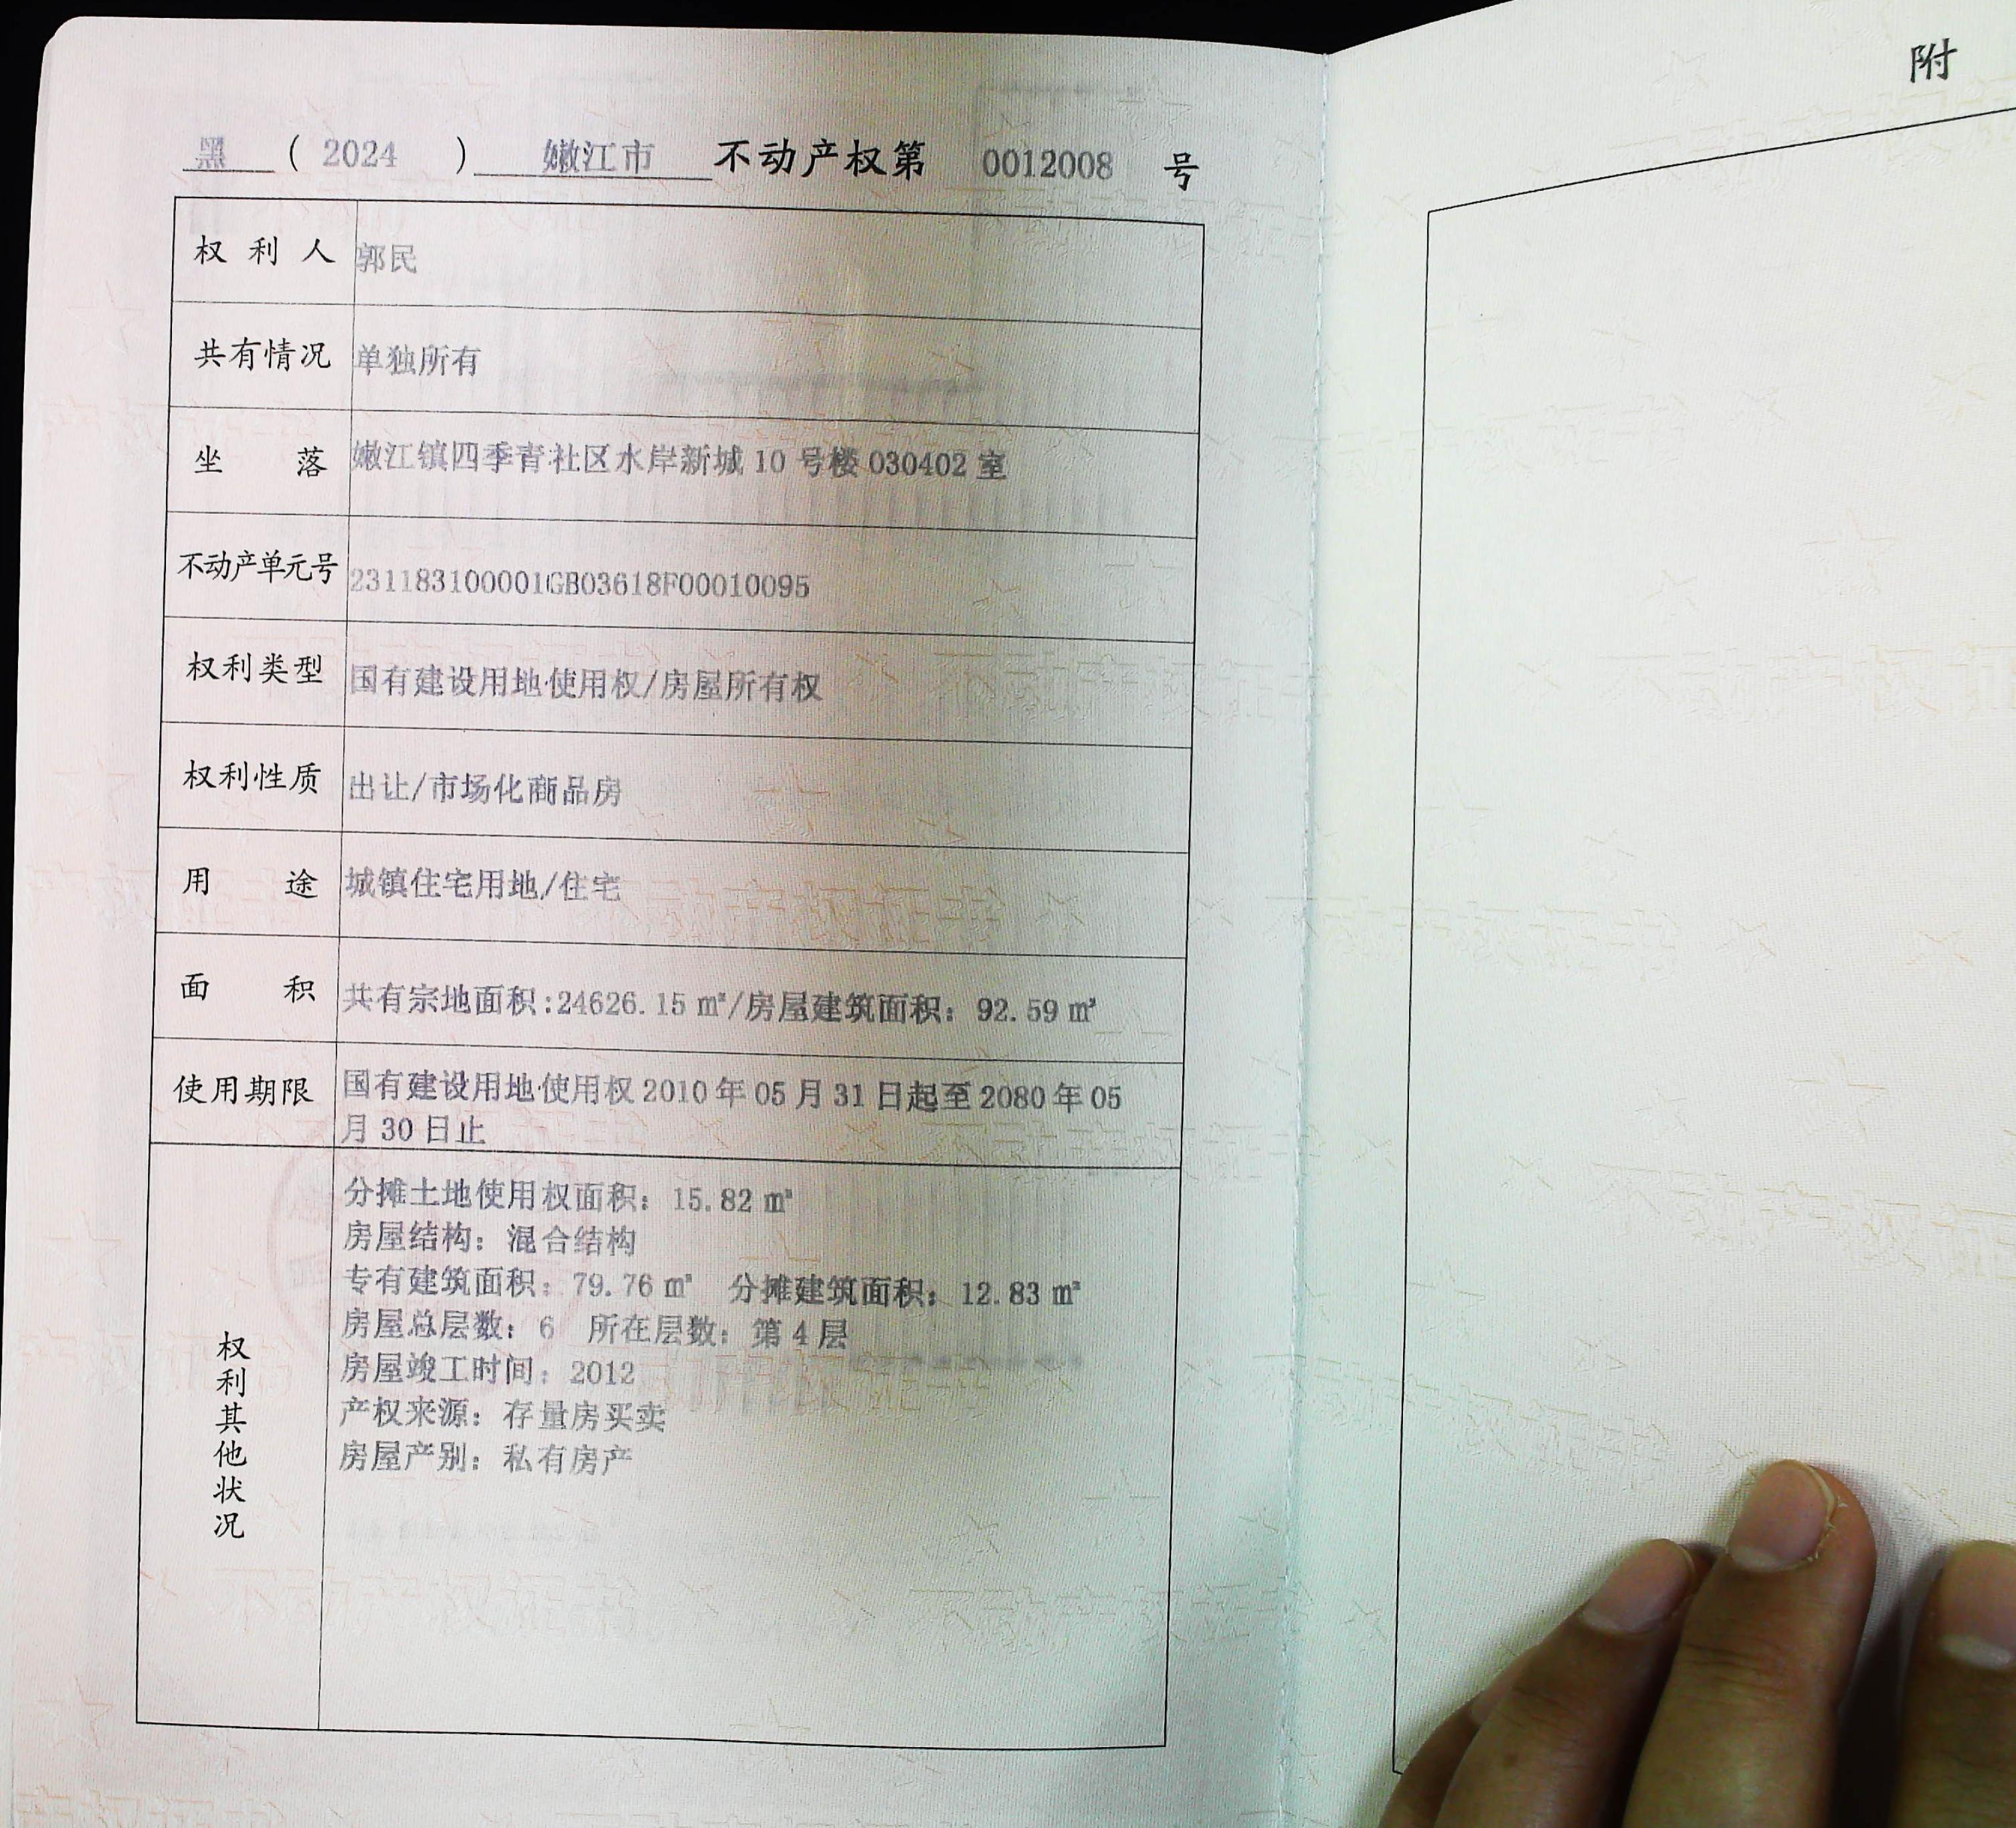 黑 ( 2024 ) 嫩江市 不动产权第 0012008 号
权利人 郭民
共有情况 单独所有
坐落 嫩江镇四季青社区水岸新城 10 号楼 030402 室
不动产单元号 231183100001GB03618F00010095
权利类型 国有建设用地使用权/房屋所有权
权利性质 出让/市场化商品房
用途 城镇住宅用地/住宅
面积 共有宗地面积:24626.15 ㎡/房屋建筑面积：92.59 ㎡
使用期限 国有建设用地使用权 2010 年 05 月 31 日起至 2080 年 05
月 30 日止
权利其他状况
分摊土地使用权面积：15.82 ㎡
房屋结构：混合结构
专有建筑面积：79.76 ㎡ 分摊建筑面积：12.83 ㎡
房屋总层数：6 所在层数：第 4 层
房屋竣工时间：2012
产权来源：存量房买卖
房屋产别：私有房产
附